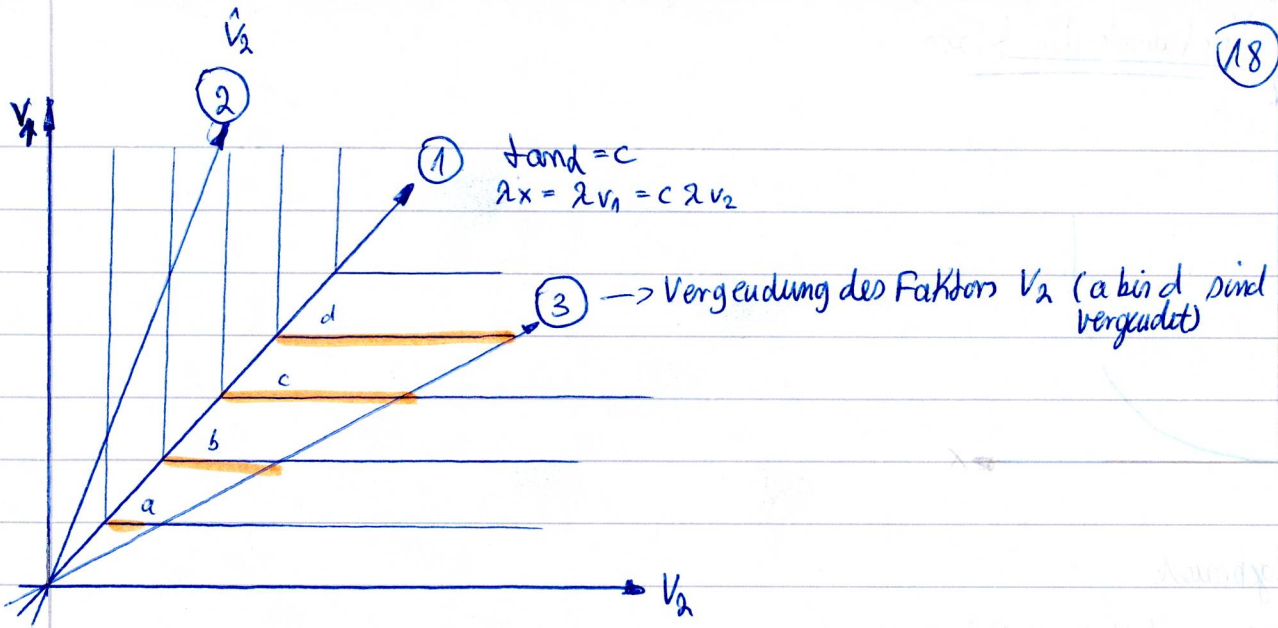 18
V̂₂
2
V₁
1 tanα = c
λx = λv₁ = c λv₂
3 —> Vergeudung des Faktors V₂ (a bis d sind
vergeudet)
d
c
b
a
V₂